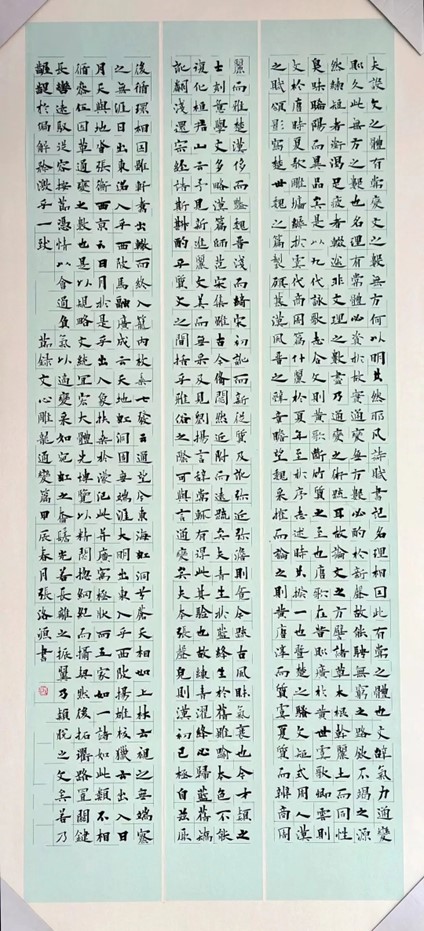 夫設文之體有常變文之數無方何以明其然耶凡詩賦書記名理相因此有常之體也文辭氣力通變
則久此無方之數也名理有常體必資於故實通變無方數必酌於新聲故能騁無窮之路飲不竭之源
然綆短者銜渴足疲者輟途非文理之數盡乃通變之術疏耳故論文之方譬諸草木根幹麗土而同性
臭味晞陽而異品矣是以九代詠歌志合文則黃歌斷竹質之至也唐歌在昔則廣於黃世虞歌卿雲則
文於唐時夏歌雕牆縟於虞代商周篇什麗於夏年至於序志述時其揆一也暨楚之騷文矩式周人漢
之賦頌影寫楚世魏之篇製顧慕漢風晉之辭章瞻望魏采搉而論之則黃唐淳而質虞夏質而辨商周
麗而雅楚漢侈而豔魏晉淺而綺宋初訛而新從質及訛彌近彌澹何則競今疏古風味氣衰也今才穎之
士刻意學文多略漢篇師範宋集雖古今備閱然近附而遠疏矣夫青生於藍絳生於蒨雖踰本色不能
復化桓君山云予見新進麗文美而無采及見劉揚言辭常輒有得此其驗也故練青濯絳必歸藍蒨矯
訛翻淺還宗經誥斯斟酌乎質文之間而括乎雅俗之際可與言通變矣夫夸張聲貌則漢初已極自茲厥
後循環相因雖軒翥出轍而終入籠內枚乘七發云通望兮東海虹洞兮蒼天相如上林云視之無端察
之無涯日出東沼入乎西陂馬融廣成云天地虹洞固無端涯大明出東入乎西陂揚雄校獵云出入日
月天與地沓張衡西京云日月於是乎出入象扶桑於濛汜此並廣寓極狀而五家如一諸如此類莫不相
循參伍因革通變之數也是以規略文統宜宏大體先博覽以精閱總綱紀而攝契然後拓衢路置關鍵
長轡遠馭從容按節憑情以會通負氣以適變采如宛虹之奮鬐光若長離之振翼乃穎脫之文矣若乃
齷齪於偏解矜激乎一致
節錄文心雕龍通變篇甲辰春月張洛漁書